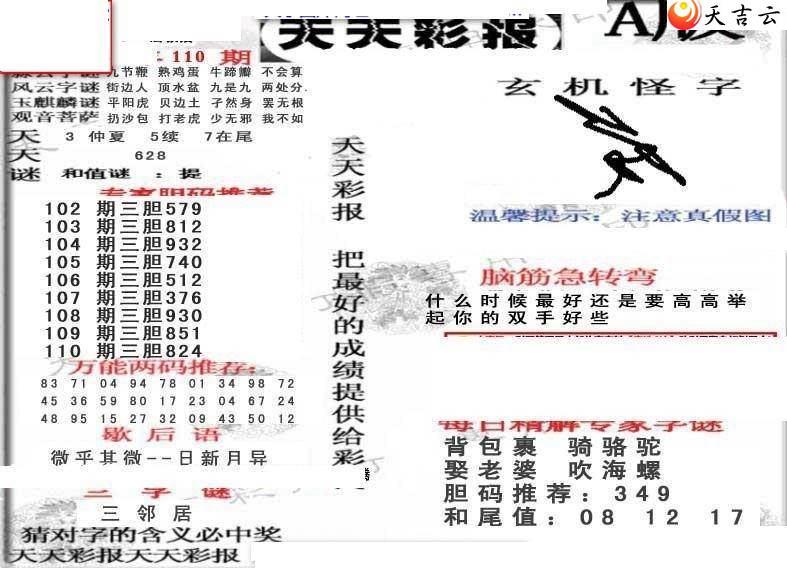 天吉云
【天天彩报】
110 期
九节鞭 熟鸡蛋 牛蹄瓣 不会算
风云字谜 街边人 顶水盆 九是九 两处分.
玉麒麟谜 平阳虎 贝边土 孑然身 罢无根
观音菩萨 扔沙包 打老虎 少无邪 我不如
天 3 仲夏 5续 7在尾
天 628
谜 和值谜 : 提
专家胆码推荐
102 期三胆579
103 期三胆812
104 期三胆932
105 期三胆740
106 期三胆512
107 期三胆376
108 期三胆930
109 期三胆851
110 期三胆824
万能两码推荐:
83 71 04 94 78 01 34 98 72
45 36 59 80 17 23 04 67 24
48 95 15 27 32 09 43 50 12
歇后语
微乎其微--日新月异
三字谜
三邻居
猜对字的含义必中奖
天天彩报天天彩报
天天彩报 把最好的成绩提供给彩
玄机怪字
温馨提示: 注意真假图
脑筋急转弯
什么时候最好还是要高高举
起你的双手好些
每日精解专家字谜
背包裹 骑骆驼
娶老婆 吹海螺
胆码推荐: 349
和尾值: 08 12 17